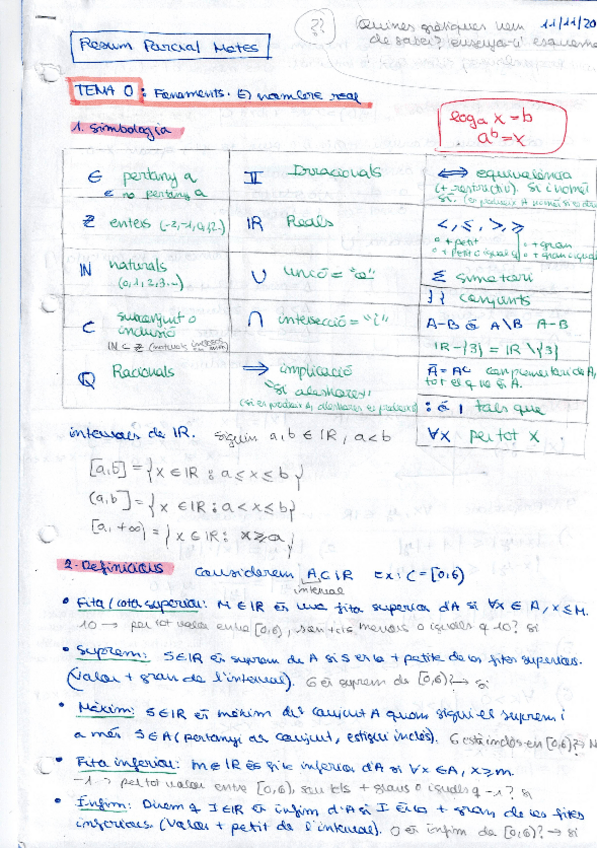 Quines gràfiques hem 11/11/20
de saber? ensenya'l esquema
??
Resum Parcial Mates
TEMA 0: Fonaments. El nombre real
loga x = b
a^b = x
1. Simbologia
∈ pertany a
∉ no pertany a
II Irracionals
⟺ equivalència
(+ restrictiu). Si i només
si.
ℤ enters (-2,-1,0,1,2..)
IR Reals
<, ≤, >, ≥
+ petit
+ petit o igual q
+ gran
+ gran o igual q
IN naturals
(0,1,2,3...)
∪ unió = "o"
Σ sumatori
} { conjunts
⊂ subconjunt o
inclusió
IN ⊂ ℤ
∩ intersecció = "i"
A-B ó A\B A-B
IR-{3} = IR\{3}
ℚ Racionals
⟹ implicació
"Si aleshores"
Ā = A^c complementari de A,
tot el q no és A.
: ó | tals que
∀x per tot x
intervals de IR. Siguin a,b ∈ IR, a<b
[a,b] = {x ∈ IR : a ≤ x ≤ b}
(a,b] = {x ∈ IR : a < x ≤ b}
[a,+∞) = {x ∈ IR : x ≥ a}
2. Definicions Considerem A ⊂ IR Ex: C = [0,6)
interval
• Fita/cota superior: M ∈ IR és una fita superior d'A si ∀x ∈ A, x ≤ M.
10 → per tot valor entre [0,6), son tots menors o iguals q 10? si
• Suprem: S ∈ IR és suprem de A si S és la + petita de les fites superiors.
(Valor + gran de l'interval). 6 és suprem de [0,6)? → si
• Màxim: S ∈ IR és màxim del conjunt A quan sigui el suprem i
a més S ∈ A (pertanyi al conjunt, estigui inclòs). 6 està inclòs en [0,6)? → N
• Fita inferior: m ∈ IR és fita inferior d'A si ∀x ∈ A, x ≥ m.
-1 → per tot valor entre [0,6), son tots + grans o iguals q -1? si
• Ínfim: Diem q I ∈ IR és ínfim d'A si I és la + gran de les fites
inferiors. (Valor + petit de l'interval). 0 és ínfim de [0,6)? → si